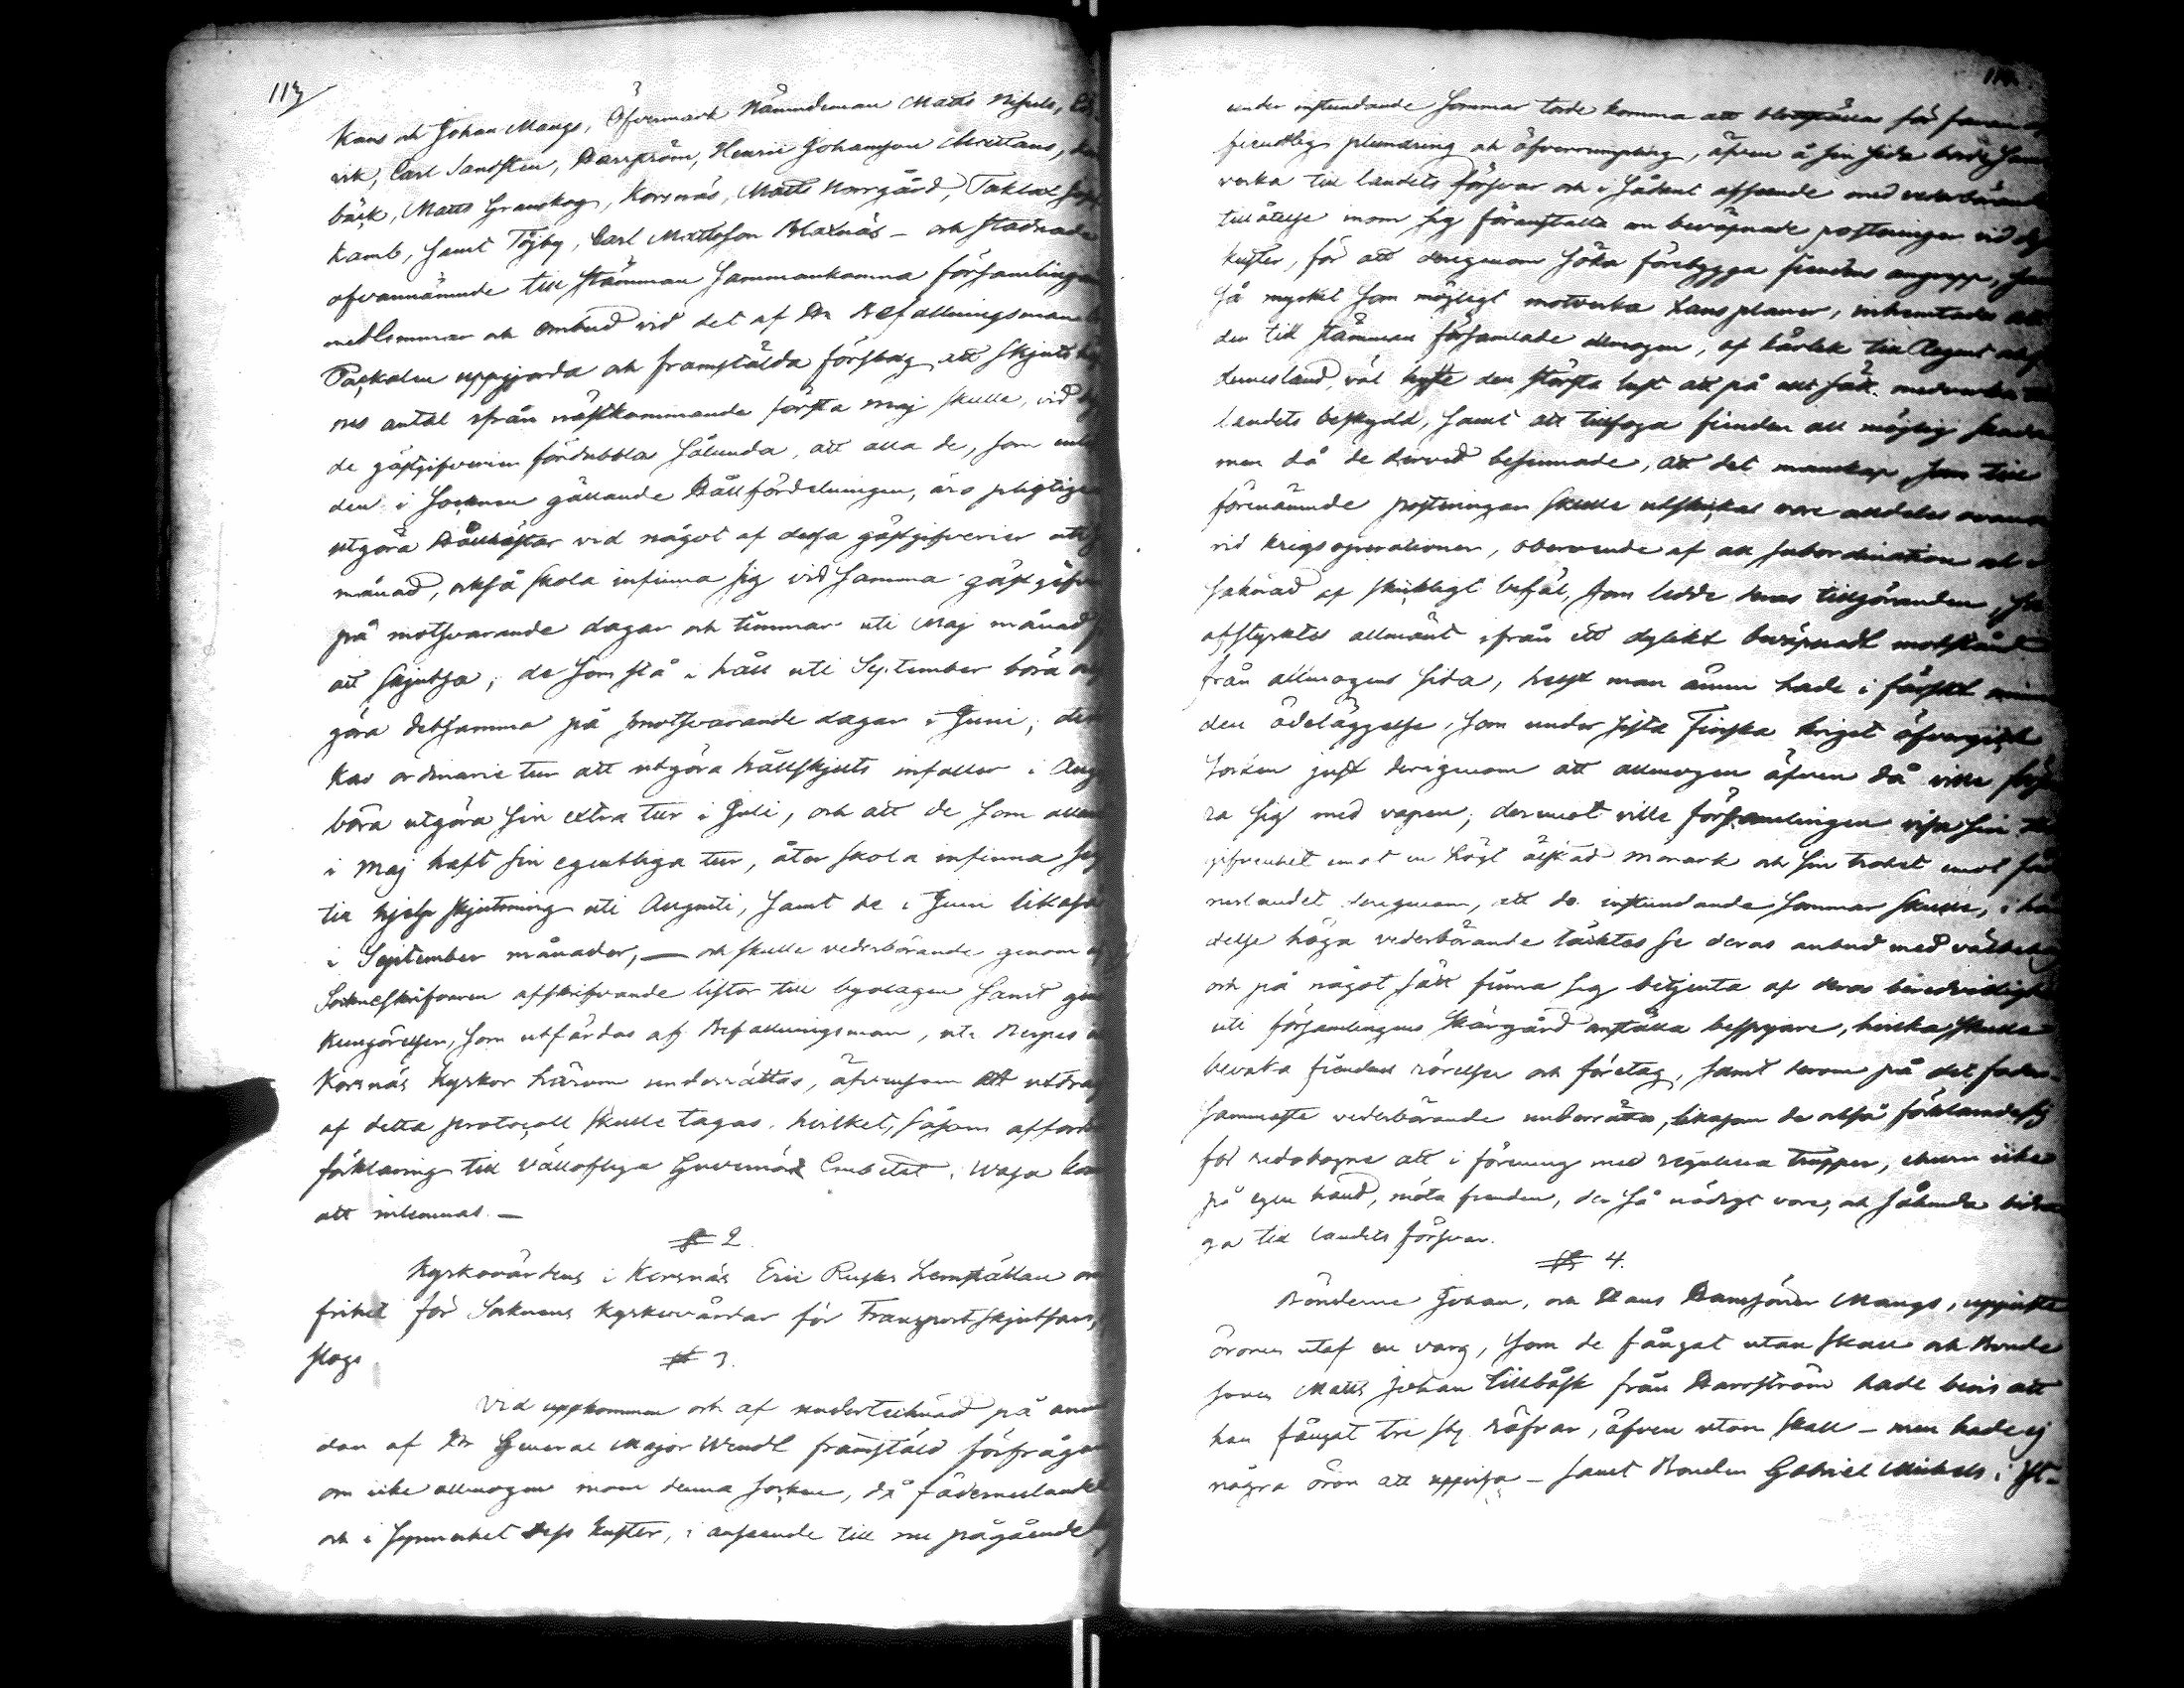 113
Kans och Johan Mangs, Öfvermark Nämndeman Matts
vik, Carl Sandsten, Harrström, Henric Johansson
bäck, Matts Granskog, Korsnäs, Matts Norrgård, Taklax
Kamb, samt Töjby, Carl Mattsson Blaxnäs – och stadnade
ofvannämnde till stämman sammankomna församlingens
medlemmar och ombud vid det af Hr Befallningsman
uppgjorda och framstälda förslag att skjuts
nes antal ifrån nästkommande första Maj skulle, vid
de gästgifverien fördubblas sålunda, att alla de, som enl
den i Socknen gällande Hållfördelningen, äro pligtige
utgöra Hållhästar vid något af dessa gästgifverier uti
månad, också skola infinna sig vid samma gästgifveri
på motsvarande dagar och timmar uti Maj månad
att skjutsa; de som stå i håll uti September böra
göra detsamma på motsvarande dagar i Juni;
kas ordinarie tur att utgöra hållskjuts infaller i Aug
böra utgöra sin extra tur i Juli, och att de som
i Maj haft sin egentliga tur, åter skola infinna sig
till hjelp skjutsning uti Augusti, samt de i Juni likaså
i September månader, — och skulle vederbörande genom
Sockneskrifvaren afskrifvande listor till byalagen samt gm
Kungörelser, som utfärdas af Befallningsman, uti Berges
Korsnäs kyrkor härom underrättas, äfvensom att utdrag
af detta protocoll skulle tagas, hvilket, såsom
förklaring till Vällofliga Guvernörs Embetet i Wasa
att inlemnas. —
§ 2.
Kyrkovärdens i Korsnäs Eric hemställan om
frihet för Socknens kyrkovärdar för Transportskjutsars,
slogs
§ 3.
Vid uppkommen och af undertecknad på
dan af Hr General Major Wendt framstäld förfrågan
om icke allmogen inom denna socken, då fäderneslandet
och i synnerhet dess kuster, i anseende till nu pågående
114.
under instundande sommar torde komma att blottställas för
fiendtlig plundring och öfverrumpling, äfven å sin sida borde
verka till landets försvar och i sådant afseende med vederbörande
tillåtelse inom sig föranstalta om beväpnade posteringar vid
kuster, för att derigenom söka förebygga fiendens angrepp,
så mycket som möjligt motverka hans planer, inhemtades
den till stämman församlade allmogen, af kärlek till Regent och
derneland, väl hyste den största lust att på allt sätt medverka till
landets beskydd, samt att tillfoga fienden all möjlig skada
men då de dervid besinnade, att det manskap, som till
förenämnde posteringar skulle utskickas vore alldeles ovana
vid krigsoperationer, oberoende af all subordination och
saknad af skickligt befäl, som ledde deras tillgöranden,
afstyrktes allmänt ifrån ett dylikt beväpnadt motstånd
från allmogens sida, helst man ännu hade i färskt minne
den ödeläggelse, som under sista Finska kriget öfvergick
socken just derigenom att allmogen äfven då ville
ra sig med vapen; deremot ville församlingen visa sin
gifvenhet emot en högt älskad Monark och sin trohet emot
neslandet derigenom, att de instundande sommar skulle, i
delse höga vederbörande täcktes se deras anbud med välbehag
och på något sätt finna sig betjenta af deras beredvillighet
uti församlingens skärgård anställa bespejare, hvilka skulle
bevaka fiendens rörelser och företag, samt derom på det
sammaste vederbörande underrätta, likasom de också förklarade sig
för redobogne att i förening med reguliera trupper, ehuru icke
på egen hand, möta fienden, der så nödigt vore, och sålunda
ga till landets försvar.
§ 4.
Bönderne Johan, och Hans Hanssöner Mangs, uppviste
öronen utaf en varg, som de fångat utan skall och Bonde
sonen Matts Johan Lillbåsk från Harrström hade bevis att
han fångat tre st. räfvar, äfven utan skall – men hade ej
några öron att uppvisa – samt Bonden Gabriel Michels i